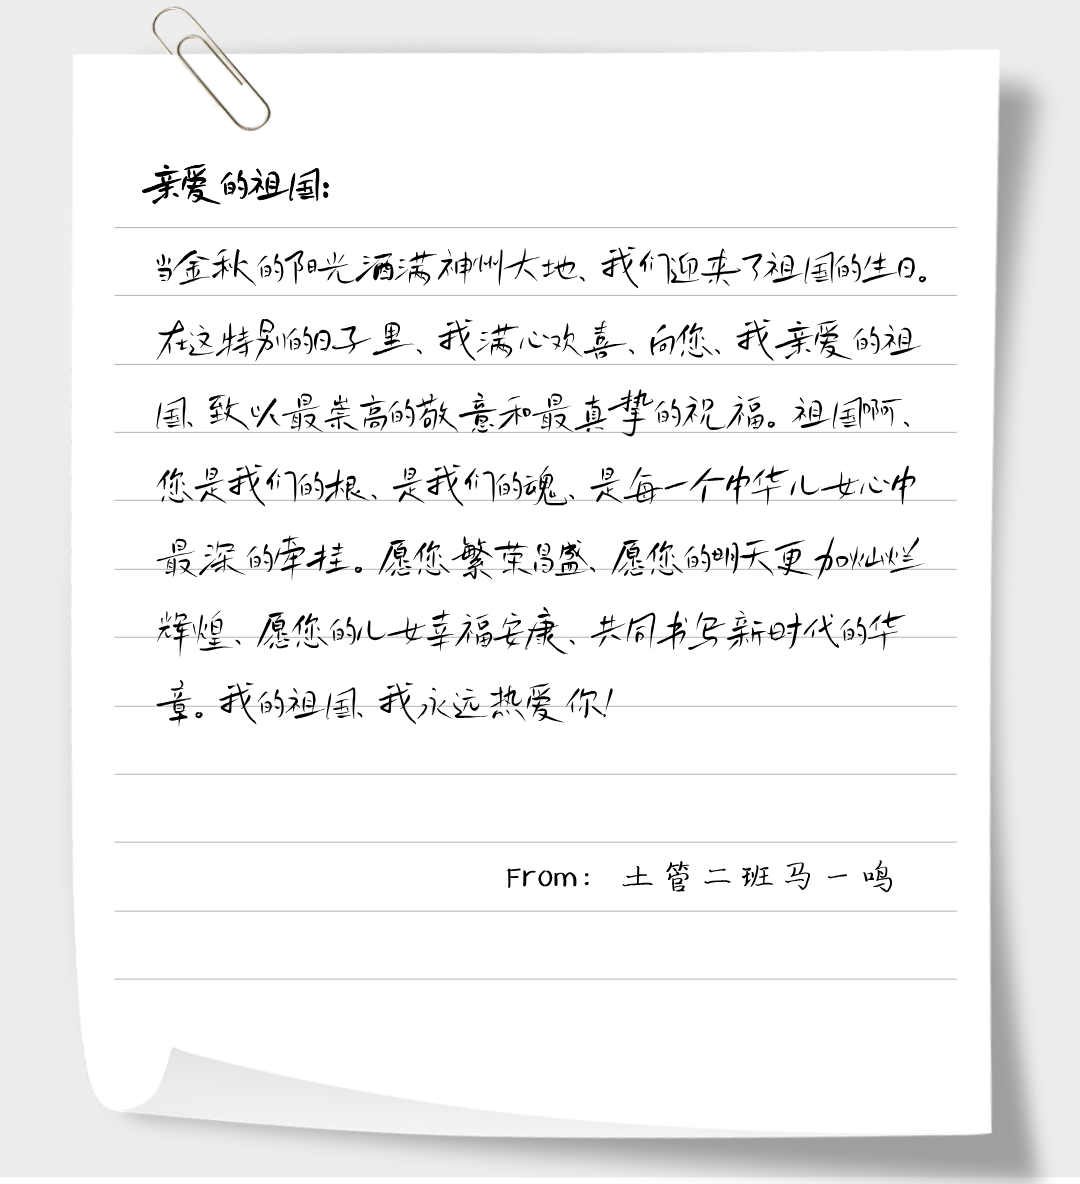 亲爱的祖国:
当金秋的阳光洒满神州大地、我们迎来了祖国的生日。
在这特别的日子里、我满心欢喜、向您、我亲爱的祖
国、致以最崇高的敬意和最真挚的祝福。祖国啊、
您是我们的根、是我们的魂、是每一个中华儿女心中
最深的牵挂。愿您繁荣昌盛、愿您的明天更加灿烂
辉煌、愿您的儿女幸福安康、共同书写新时代的华
章。我的祖国、我永远热爱你!
From: 土管二班马一鸣